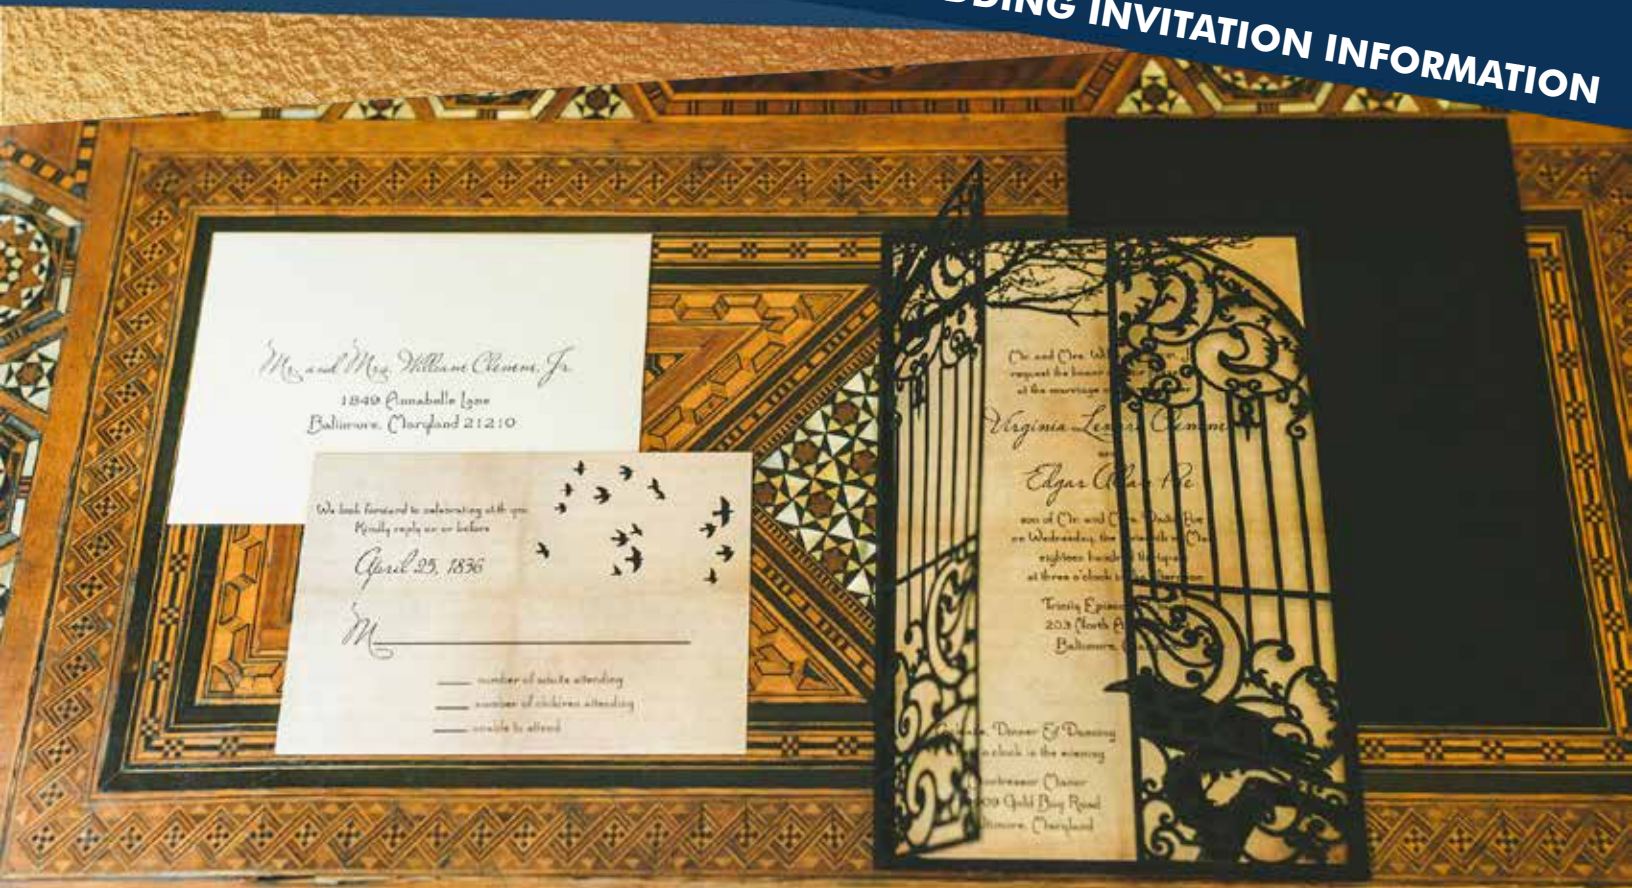 INVITATION INFORMATION
Mr. and Mrs. William Clemm, Jr.
1849 Annabelle Lane
Baltimore, Maryland 21210
We look forward to celebrating with you
Kindly reply on or before
April 25, 1836
M
number of adults attending
number of children attending
unable to attend
Mr. and Mrs.
request the honor
at the marriage
Virginia Clemm
Edgar Allan Poe
son of Mr. and Mrs. David Poe
on Wednesday, the
eighteen
at three o'clock
Trinity
203 North
Baltimore,
Dinner & Dancing
o'clock in the evening
Manor
Gold Bug Road
Maryland